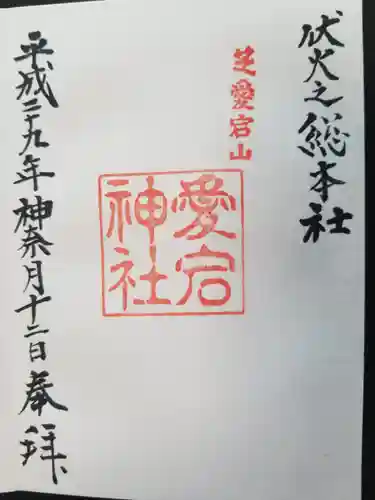 伏火之総本社
芝愛宕山
愛宕
神社
平成二十九年神奈月十二日奉拝